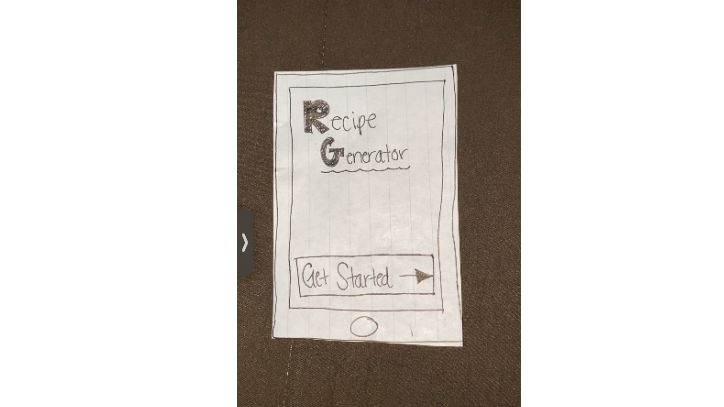 Recipe
Generator
Get Started